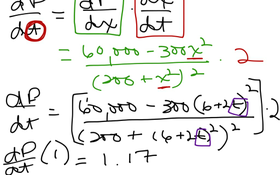 dP/dt = dP/dx · dx/dt
= (60,000 - 300x²)/(200 + x²)² · 2
dP/dt = [(60,000 - 300(6+2t)²)/(200 + (6+2t)²)²] · 2
dP/dt (1) = 1.17